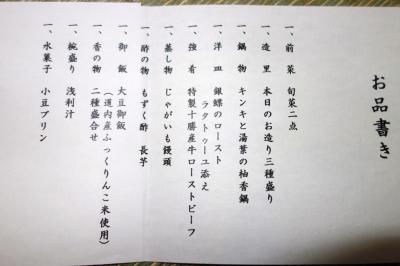 お品書き
一、前菜 旬菜二点
一、造里 本日のお造り三種盛り
一、鍋物 キンキと湯葉の柚香鍋
一、洋皿 銀鰈のロースト
ラタトゥーユ添え
一、強肴 特製十勝産牛ローストビーフ
一、蒸し物 じゃがいも饅頭
一、酢の物 もずく酢 長芋
一、御飯 大豆御飯
（道内産ふっくりんこ米使用）
一、香の物 二種盛合せ
一、椀盛り 浅利汁
一、水菓子 小豆プリン